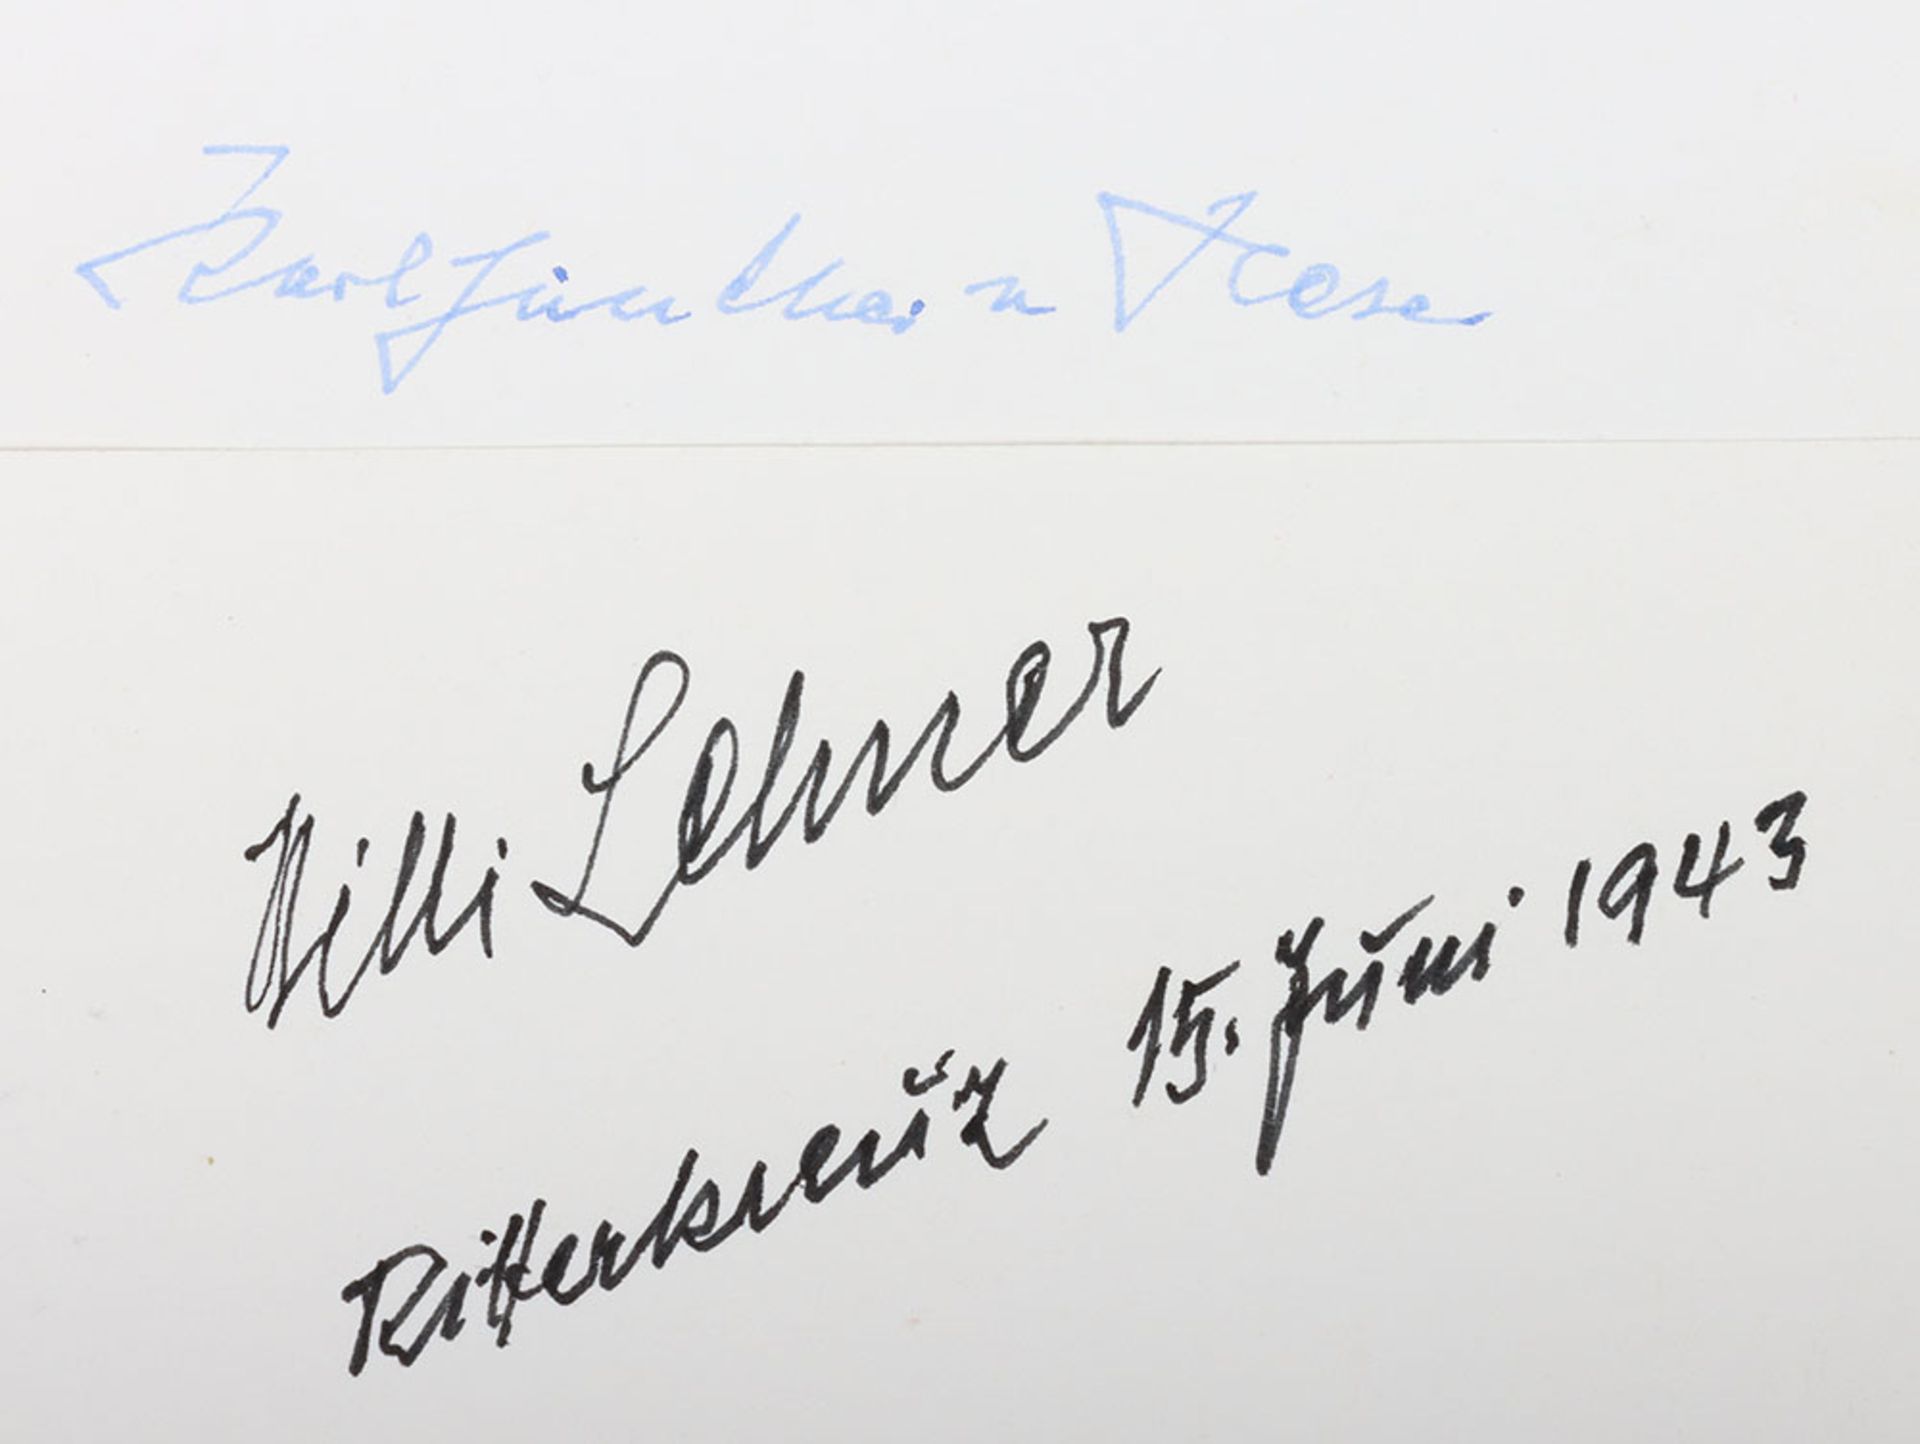 Karl Günther v. Hase
Willi Lehner
Ritterkreuz 15. Juni 1943